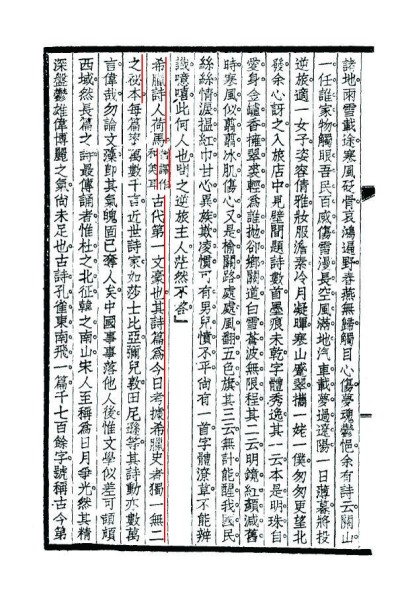 諸地雨雪載途寒風砭骨哀鴻遍野春燕無歸觸目心傷夢魂驚悒余有詩云關山
一任誰家物觸眼吾民百感傷雪漫長空風滿地汽車載夢過遼陽一日薄暮將投
逆旅適一女子姿容倩雅妝服澹素冷月凝暉寒山蹙翠攜一姥一僕匆匆更望北
發余心訝之入旅店中見壁間題詩數首墨痕未乾字體秀逸其一云本是明珠自
愛身金爐香擁翠裘輕爲誰拋卻鄉關道白雪蒼波無限程其二云明鏡紅顏減舊
時寒風似翦翦冰肌傷心又是榆關路處處風翻五色旗其三云無計能醒我國民
絲絲情淚搵紅巾甘心異族欺凌慣可有男兒憤不平尚有一首字體潦草不能辨
識噫嘻此何人也明之逆旅主人茫然不答
希臘詩人荷馬古代第一文豪也其詩篇爲今日考據希臘史者獨一無二
之秘本每篇率萬數千言近世詩家如莎士比亞彌兒敦田尼遜等其詩動亦數萬
言偉哉勿論文藻即其氣魄固已奪人矣中國事事落他人後惟文學似差可頡頏
西域然長篇之詩最傳誦者惟杜之北征韓之南山宋人至稱爲日月爭光然其精
深盤鬱雄偉博麗之氣尚未足也古詩孔雀東南飛一篇千七百餘字號稱古今第